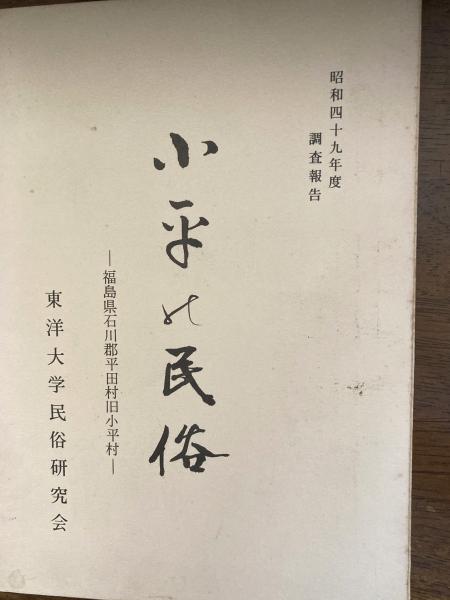 昭和四十九年度
調査報告
小平の民俗
―福島県石川郡平田村旧小平村―
東洋大学民俗研究会